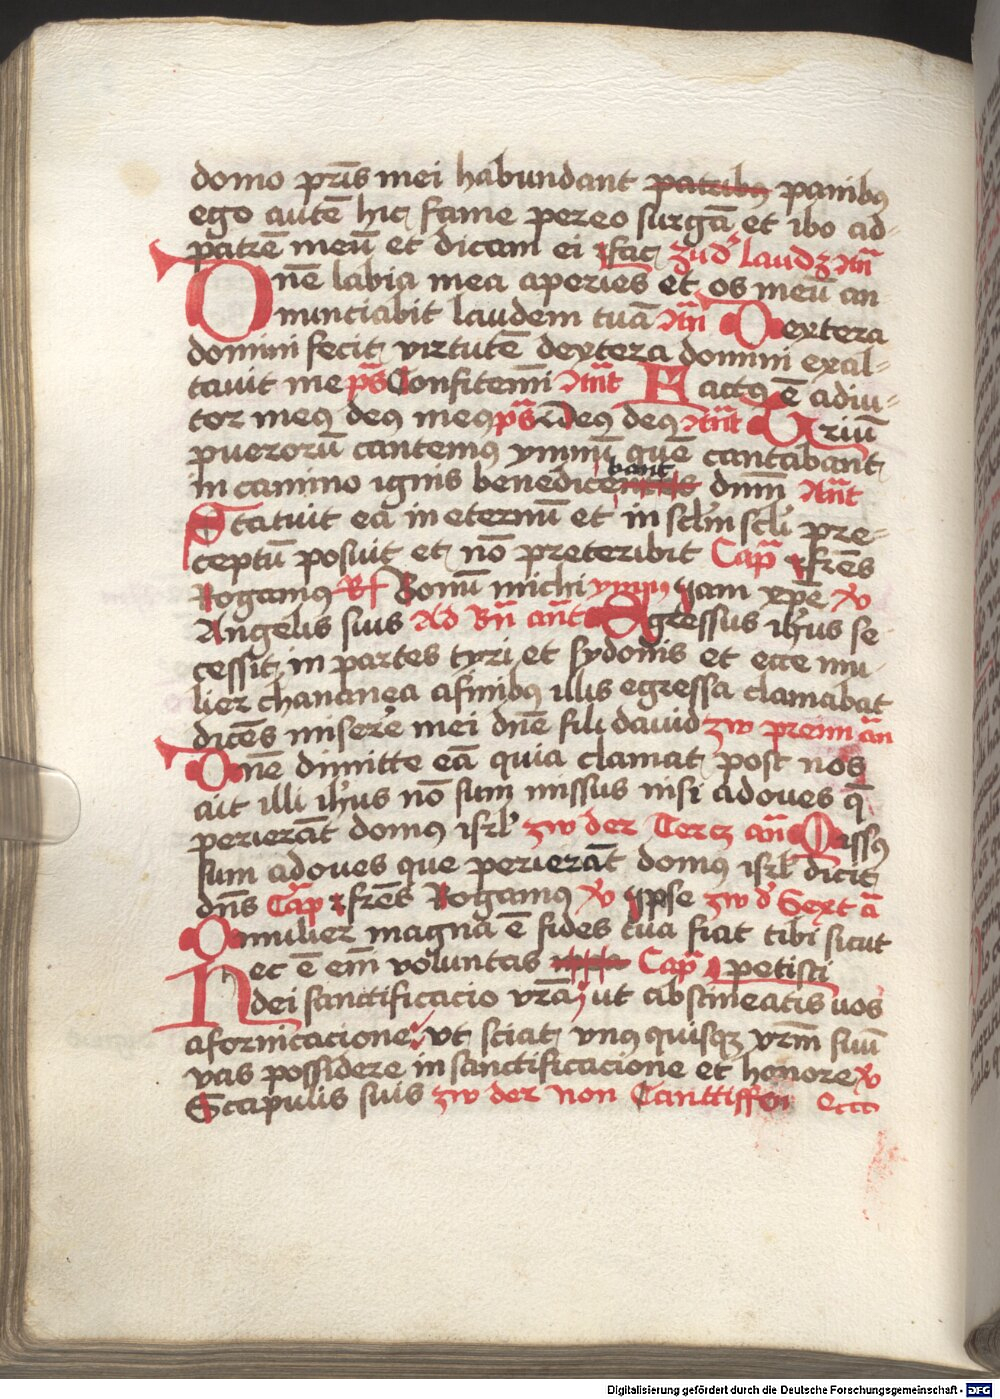 domo pr̄is mei habundant patribꝰ panibꝰ
ego autē hic fame pereo surgā et ibo ad-
patrē meū et dicam ei fac zud' laudz an̄
Dnē labia mea aperies et os meū an-
nunciabit laudem tuā an̄ Dextera
domini fecit virtutē dextera domini exal-
tauit me ps̄ Confitem̄i Ant̄ Factꝰ ē adiu-
tor meꝰ deꝰ meꝰ ps̄ Deꝰ deꝰ Ant̄ Triū
puerorū cantemꝰ ymnū quē cantabant
in camino ignis benedicentes bant dnm̄ Ant̄
Statuit ea in eternū et in sclm̄ scli pre-
ceptū posuit et nō preteribit Cap̄ frēs
Rogamꝰ Rs Bonū michi ympꝰ iam xp̄e v
Angelis suis Ad Bn̄ ant̄ Egressus ih̄us se
cessit in partes tyri et sydonis et ecce mu-
lier chananea afinibꝰ illis egressa clamabat
dicēs miserē mei dnē fili dauid zw preim an̄
Dnē dimitte eā quia clamat post nos
ait illi ih̄us nō sum missus nisi adoues q̄
perierāt domꝰ isrl' zw der Tercz an̄ Missꝰ
sum adoues que perierāt domꝰ isrl' dicit
dn̄s Cap̄ frēs Rogamꝰ v ipse zw d' Sext ā
O mulier magna ē fides tua fiat tibi sicut
petisti Cap̄
Hec ē em̄ voluntas
dei sanctificacio vr̄a ut abstineatis uos
afornicacione vt sciat vnꝰ quisqꝫ vr̄m suū
vas possidere in sanctificacione et honore v
Scapulis suis zw der non Canttiffen etc
Digitalisierung gefördert durch die Deutsche Forschungsgemeinschaft - DFG